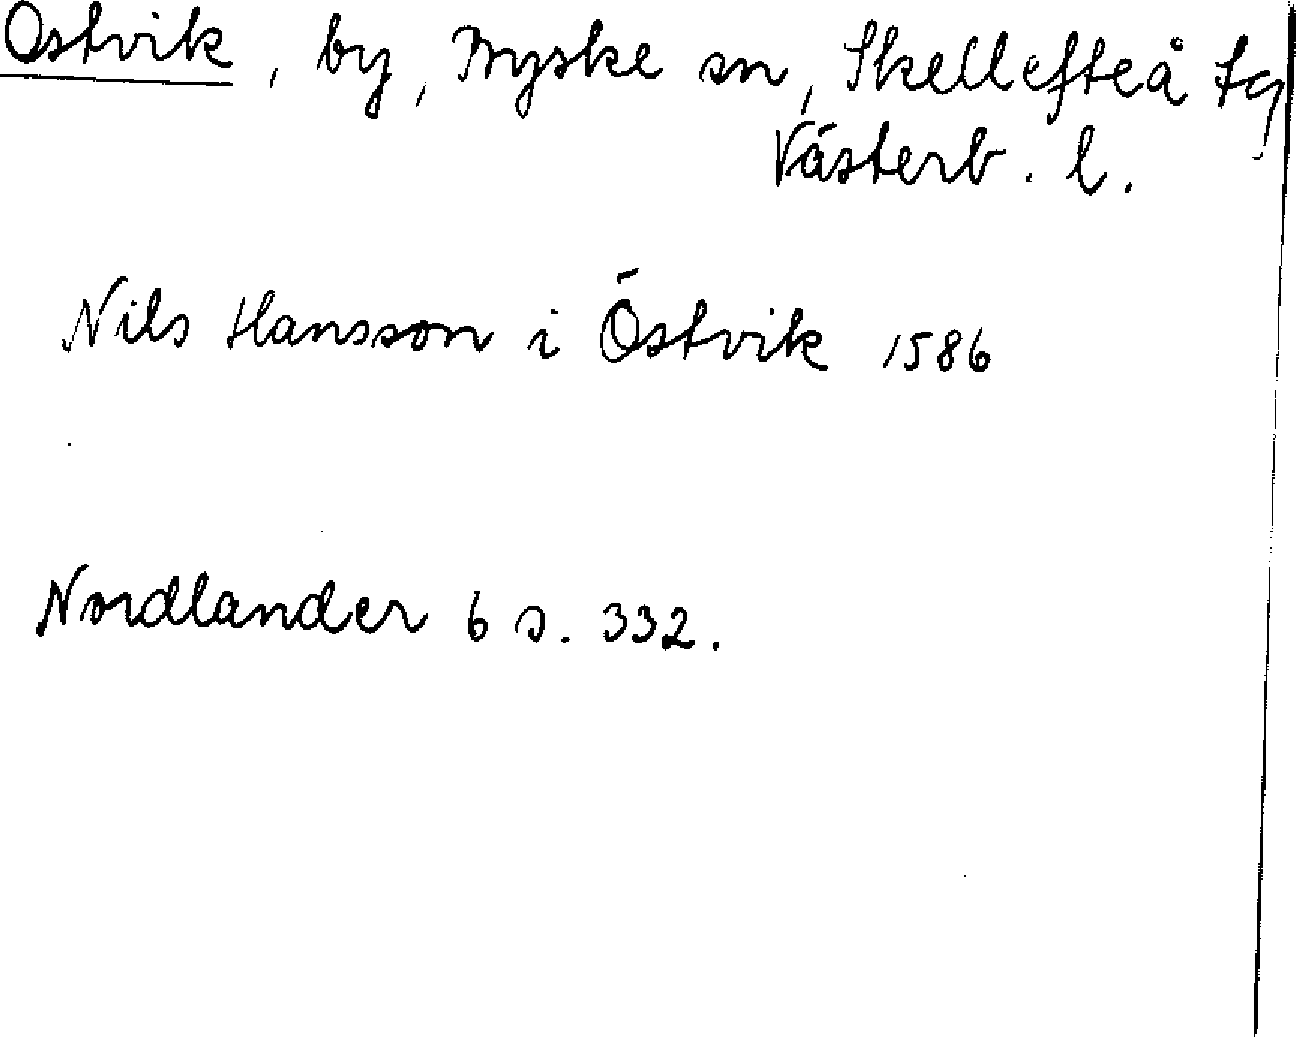 Ostvik, by, Byske sn, Skellefteå tg
Västerb. l.
Nils Hansson i Östvik 1586
Nordlander 6 s. 332.